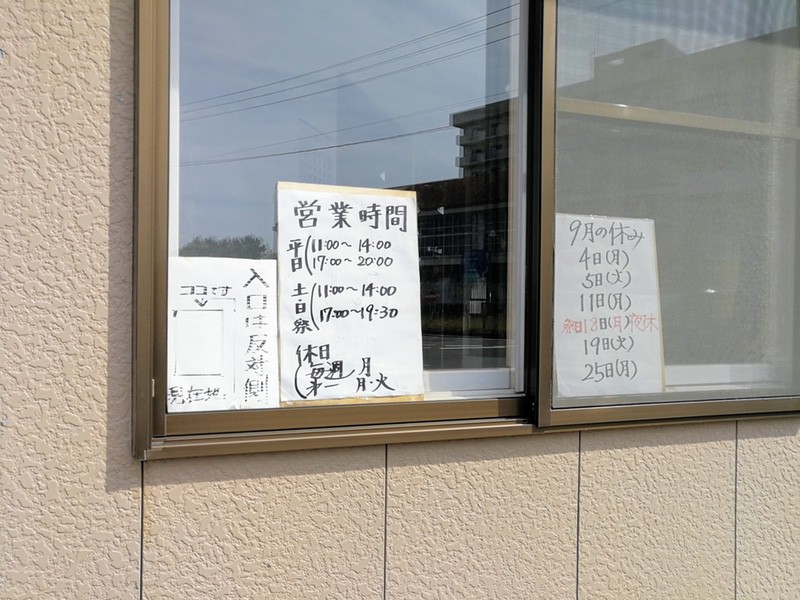 ココです
入口は反対側
現在地
営業時間
平日(11:00〜14:00
17:00〜20:00
土・日・祭(11:00〜14:00
17:00〜19:30
休日
(毎週 月
第一 月・火
9月の休み
4日(月)
5日(火)
11日(月)
祭日18日(月)夜休
19日(火)
25日(月)